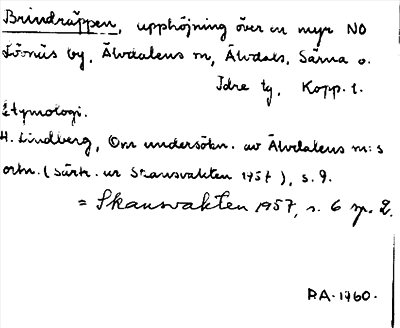 Brindräppen, upphöjning över en myr NO
Lövnäs by, Älvdalens sn, Älvdals, Särna o.
Idre tg, Kopp. l.
Etymologi.
H. Lindberg, Om undersökn. av Älvdalens sn:s
ortn. (särtr. ur Skansvakten 1957), s. 9.
= Skansvakten 1957, s. 6 sp. 2.
RA. 1760.